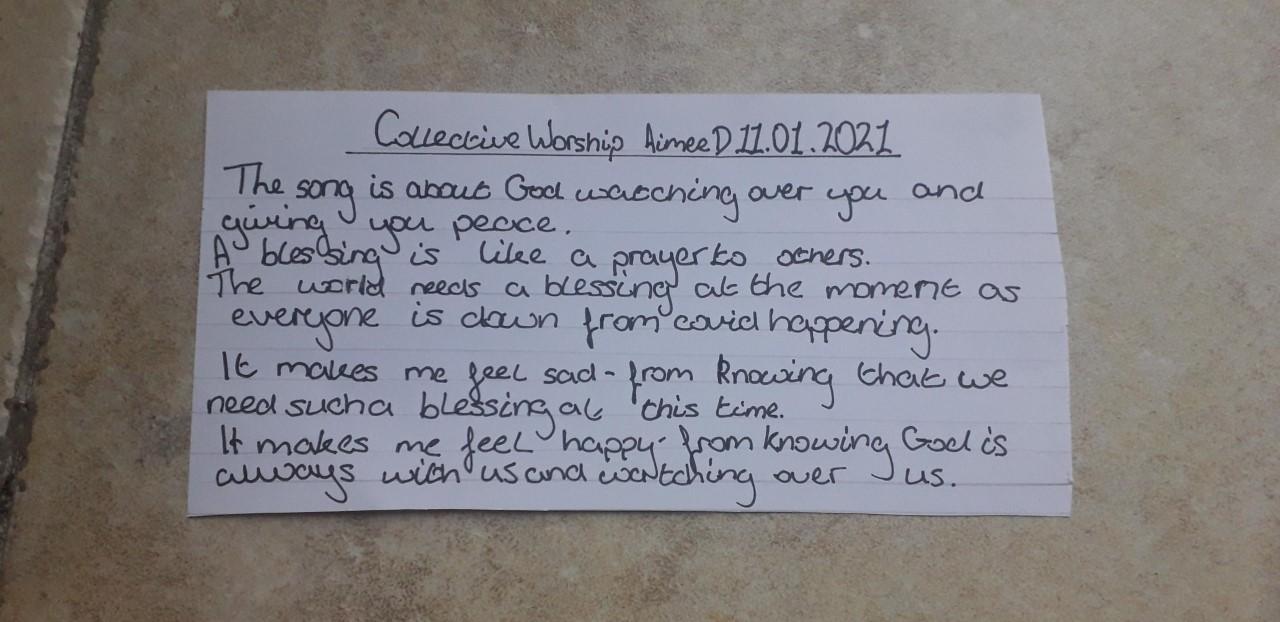 Collective Worship Aimee D 11.01.2021
The song is about God watching over you and
giving you peace.
A blessing is like a prayer to others.
The world needs a blessing at the moment as
everyone is down from covid happening.
It makes me feel sad - from knowing that we
need such a blessing at this time.
It makes me feel happy - from knowing God is
always with us and watching over us.